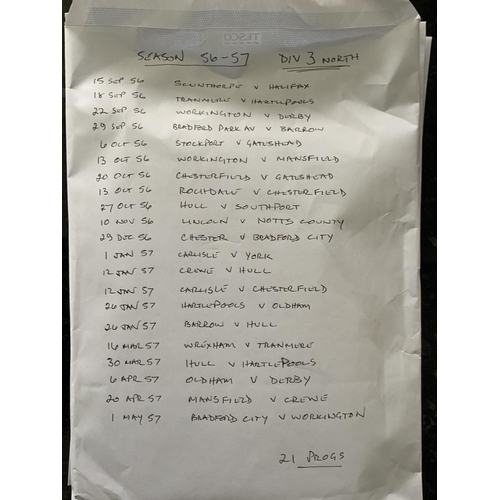 TESCO
SEASON 56-57 DIV 3 NORTH
15 SEP 56 SCUNTHORPE V HALIFAX
18 SEP 56 TRANMERE V HARTLEPOOLS
22 SEP 56 WORKINGTON V DERBY
29 SEP 56 BRADFORD PARK AV V BARROW
6 OCT 56 STOCKPORT V GATESHEAD
13 OCT 56 WORKINGTON V MANSFIELD
20 OCT 56 CHESTERFIELD V GATESHEAD
13 OCT 56 ROCHDALE V CHESTERFIELD
27 OCT 56 HULL V SOUTHPORT
10 NOV 56 LINCOLN V NOTTS COUNTY
29 DEC 56 CHESTER V BRADFORD CITY
1 JAN 57 CARLISLE V YORK
12 JAN 57 CREWE V HULL
12 JAN 57 CARLISLE V CHESTERFIELD
26 JAN 57 HARTLEPOOLS V OLDHAM
26 JAN 57 BARROW V HULL
16 MAR 57 WREXHAM V TRANMERE
30 MAR 57 HULL V HARTLEPOOLS
6 APR 57 OLDHAM V DERBY
20 APR 57 MANSFIELD V CREWE
1 MAY 57 BRADFORD CITY V WORKINGTON
21 PROGS